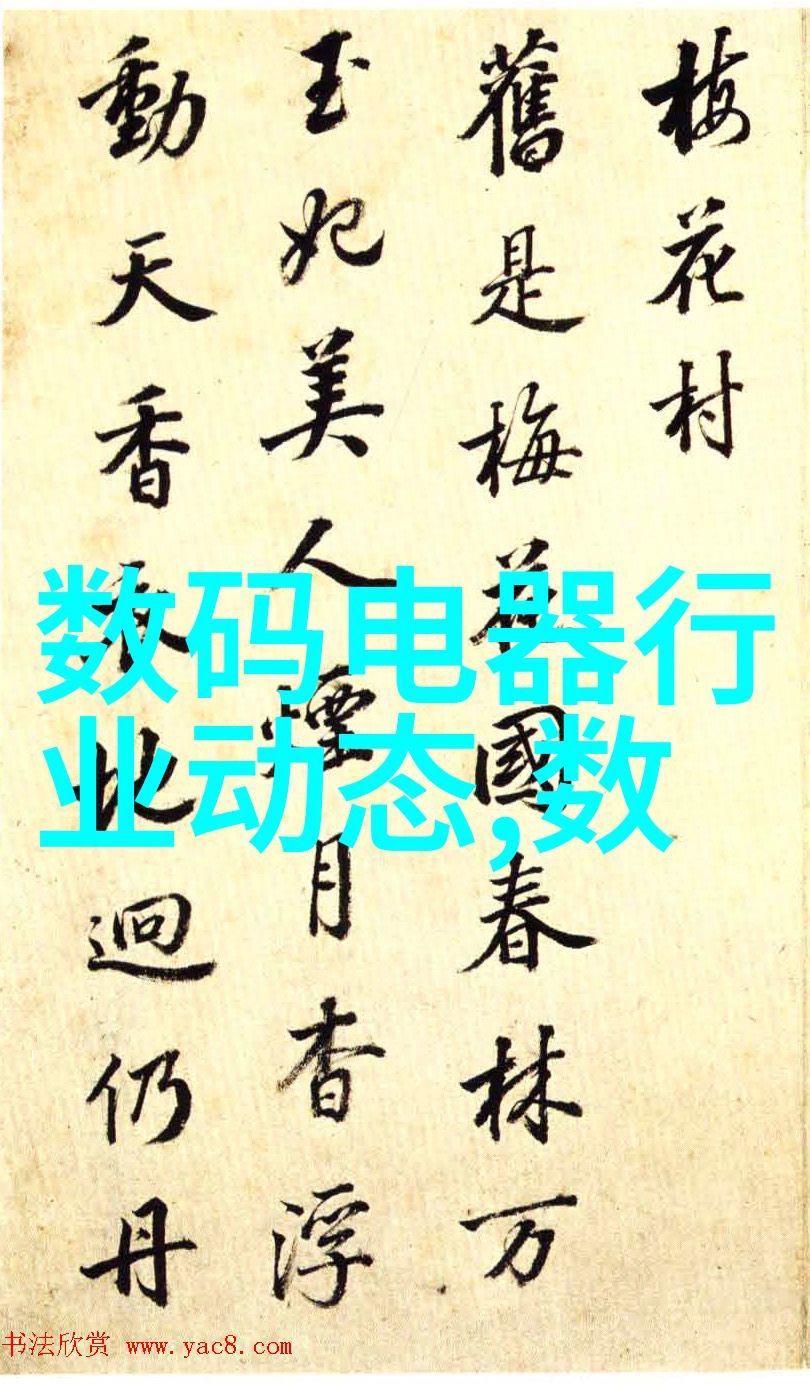 梅花村
舊是梅花國春林万
玉妃美人煙月杳浮
動天香迥仍丹
数码电器行
业动态,数
书法欣赏 www.yac8.com